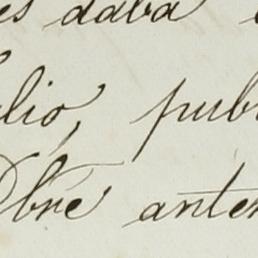 es daba
lio, pub
Obre anter